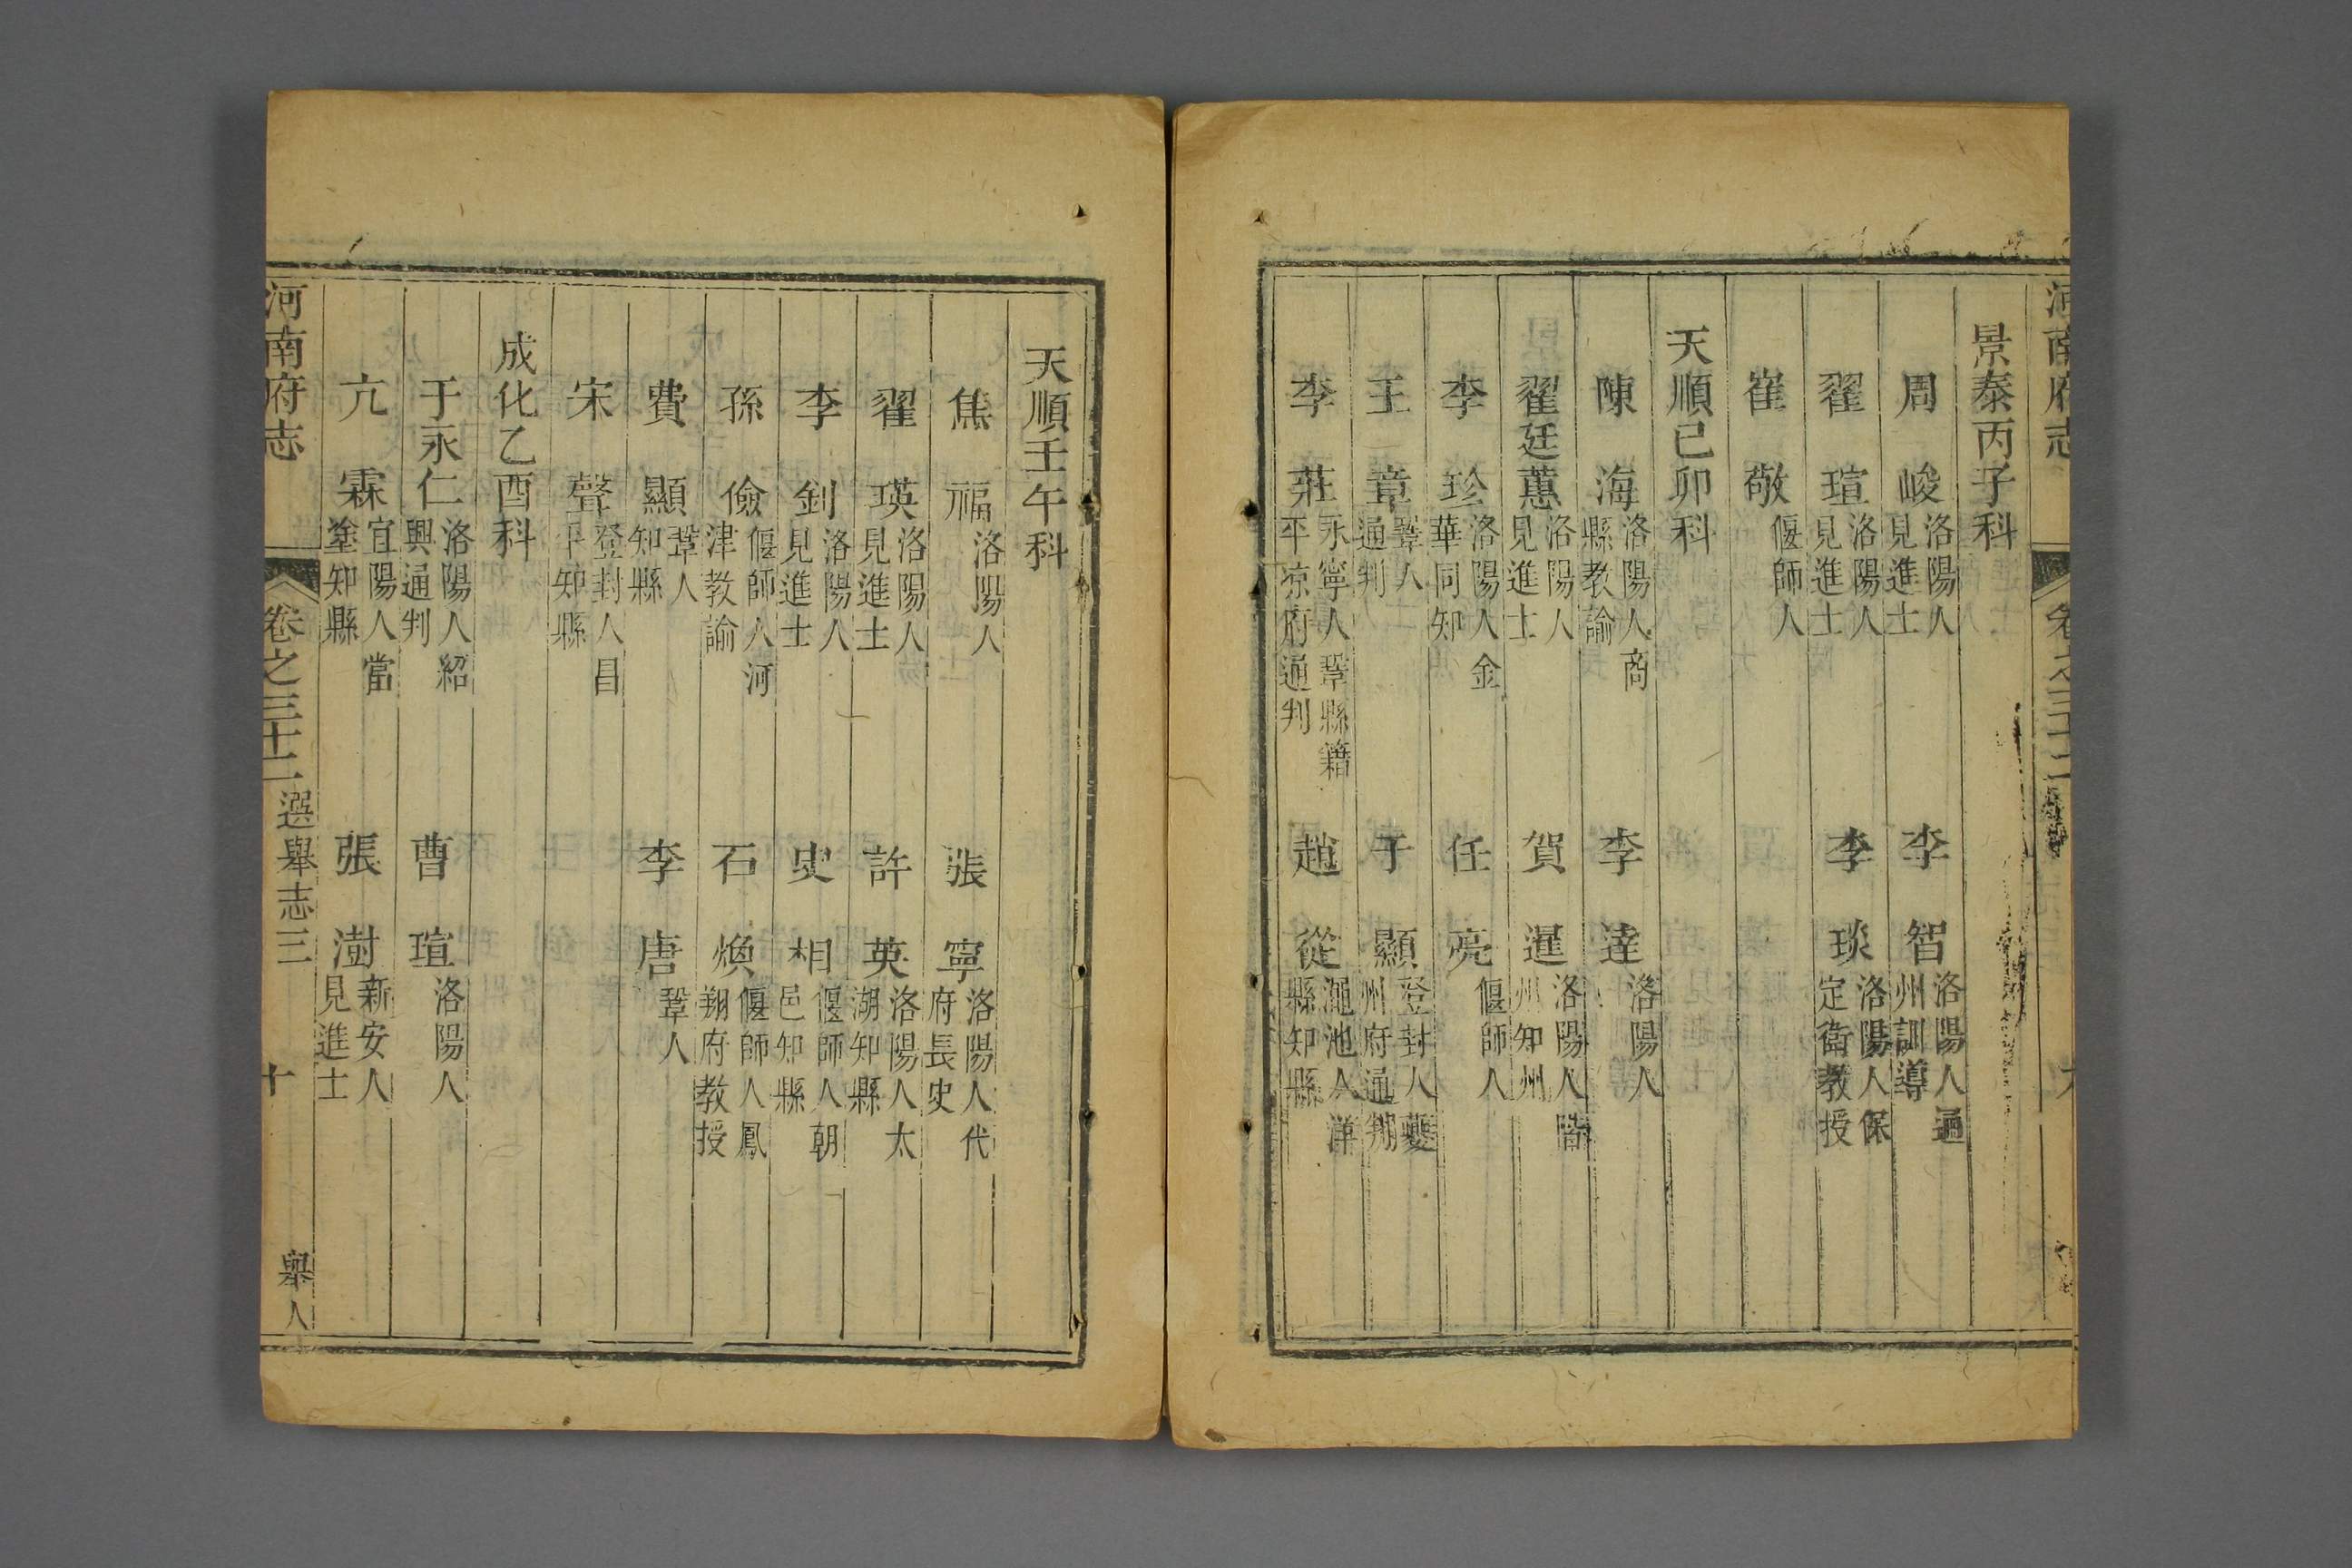 河南府志 卷之三十二
景泰丙子科
周 峻 洛陽人見進士 李 智 洛陽人通州訓導
翟 瑄 洛陽人見進士 李 琰 洛陽人保定衛教授
崔 敬 偃師人
天順己卯科
陳 海 洛陽人商縣教諭 李 達 洛陽人
翟廷蕙 洛陽人見進士 賀 暹 洛陽人 州知州
李 珍 洛陽人金華同知 任 亮 偃師人
王 章 鞏人通判 于 顯 登封人夔州府通判
李 莊 永寧人鞏縣籍平涼府通判 趙 從 澠池人洋縣知縣
天順壬午科
焦 福 洛陽人 張 寧 洛陽人代府長史
翟 瑛 洛陽人見進士 許 英 洛陽人太湖知縣
李 釗 洛陽人見進士 史 相 偃師人朝邑知縣
孫 儉 偃師人河津教諭 石 煥 偃師人鳳翔府教授
費 顯 鞏人知縣 李 唐 鞏人
宋 聲 登封人昌平知縣
成化乙酉科
于永仁 洛陽人紹興通判 曹 瑄 洛陽人
亢 霖 宜陽人當塗知縣 張 澍 新安人見進士
河南府志 卷之三十二 選舉志三 十 舉人